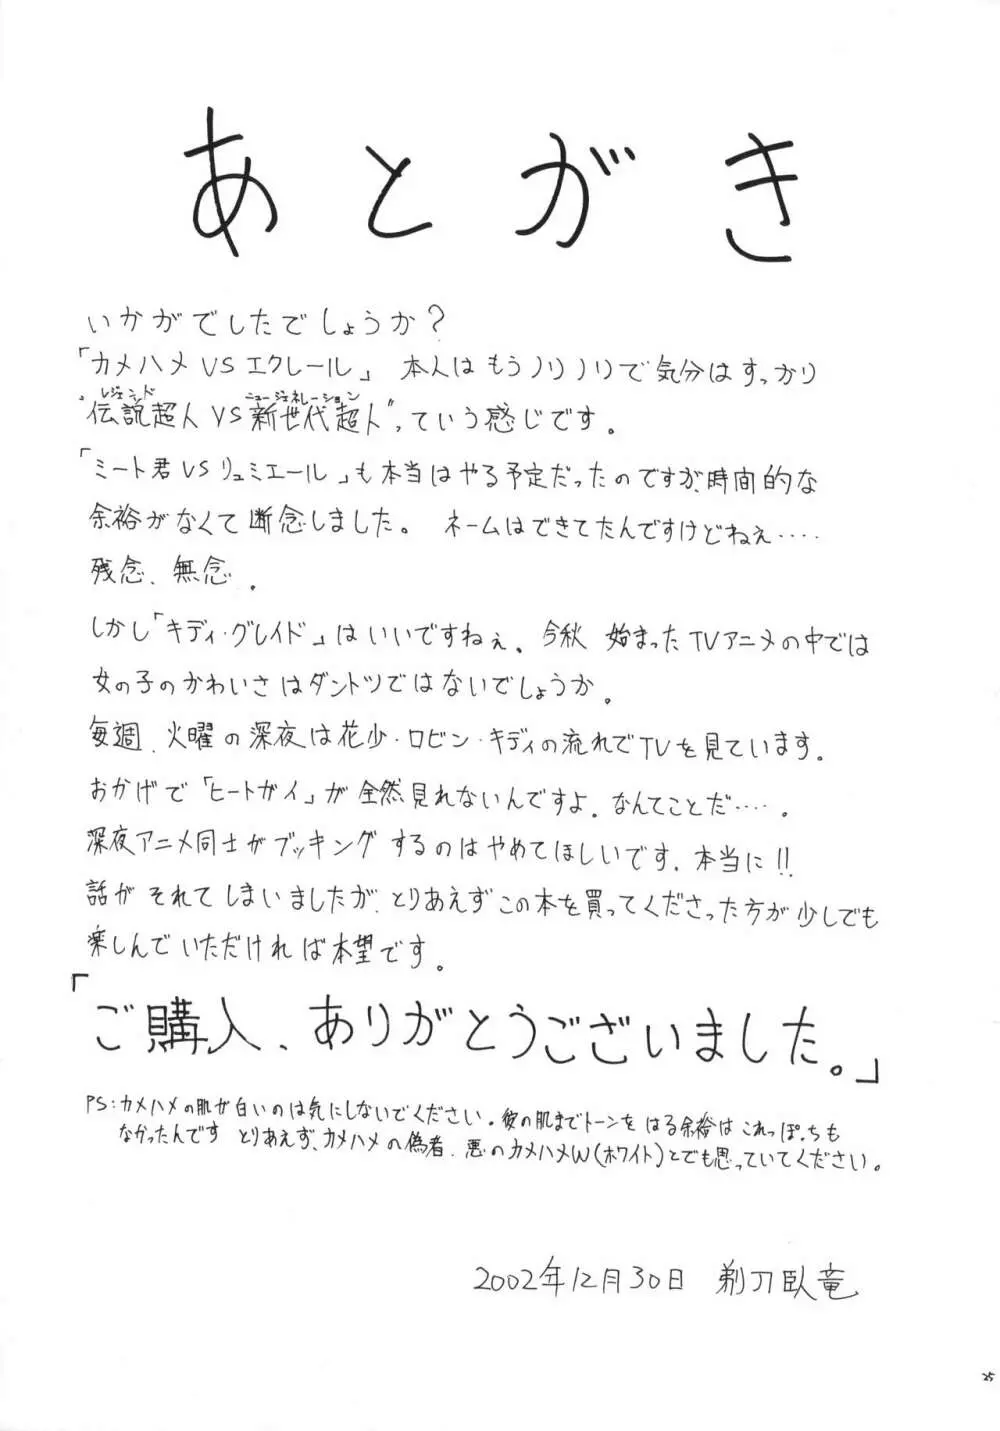 あとがき
いかがでしたでしょうか?
「カメハメVSエクレール」 本人はもうノリノリで気分はすっかり
レジェンド ニュージェネレーション
"伝説超人VS新世代超人"っていう感じです。
「ミート君VSリュミエール」も本当はやる予定だったのですが、時間的な
余裕がなくて断念しました。 ネームはできてたんですけどねぇ‥‥
残念、無念。
しかし「キディ・グレイド」はいいですねぇ。今秋 始まったTVアニメの中では
女の子のかわいさはダントツではないでしょうか。
毎週、火曜の深夜は花少・ロビン・キディの流れでTVを見ています。
おかげで「ヒートガイ」が全然見れないんですよ。なんてことだ‥‥。
深夜アニメ同士がブッキングするのはやめてほしいです。本当に!!
話がそれてしまいましたが、とりあえずこの本を買ってくださった方が少しでも
楽しんでいただければ本望です。
「ご購入、ありがとうございました。」
PS:カメハメの肌が白いのは気にしないでください。彼の肌までトーンをはる余裕はこれっぽっちも
なかったんです とりあえず、カメハメの偽者、悪のカメハメW(ホワイト)とでも思っていてください。
2002年12月30日 剃刀臥竜
25